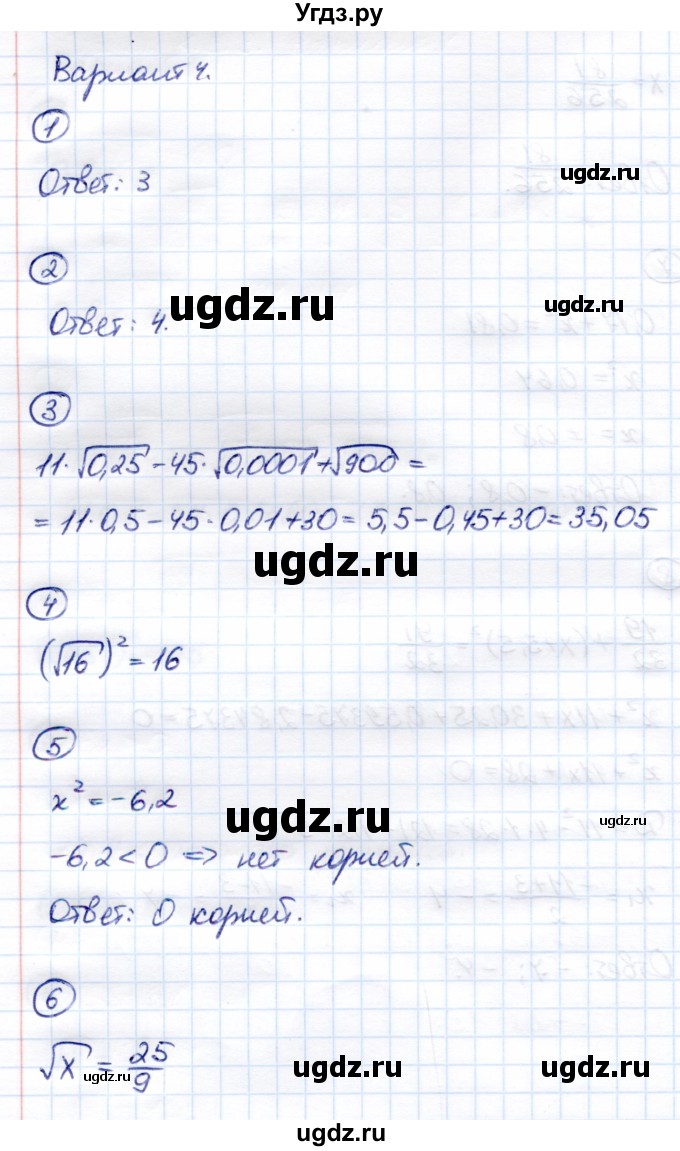 Угдз.ру
Вариант 4.
1
ugdz.ru
Ответ: 3
2
ugdz.ru
ugdz.ru
Ответ: 4.
3
11·√0,25 − 45·√0,0001 + √900 =
= 11·0,5 − 45·0,01 + 30 = 5,5 − 0,45 + 30 = 35,05
ugdz.ru
4
(√16)² = 16
5
x² = −6,2
ugdz.ru
ugdz.ru
−6,2 < 0 => нет корней.
Ответ: 0 корней.
6
√x = 25/9
ugdz.ru
ugdz.ru
ugdz.ru
ugdz.ru